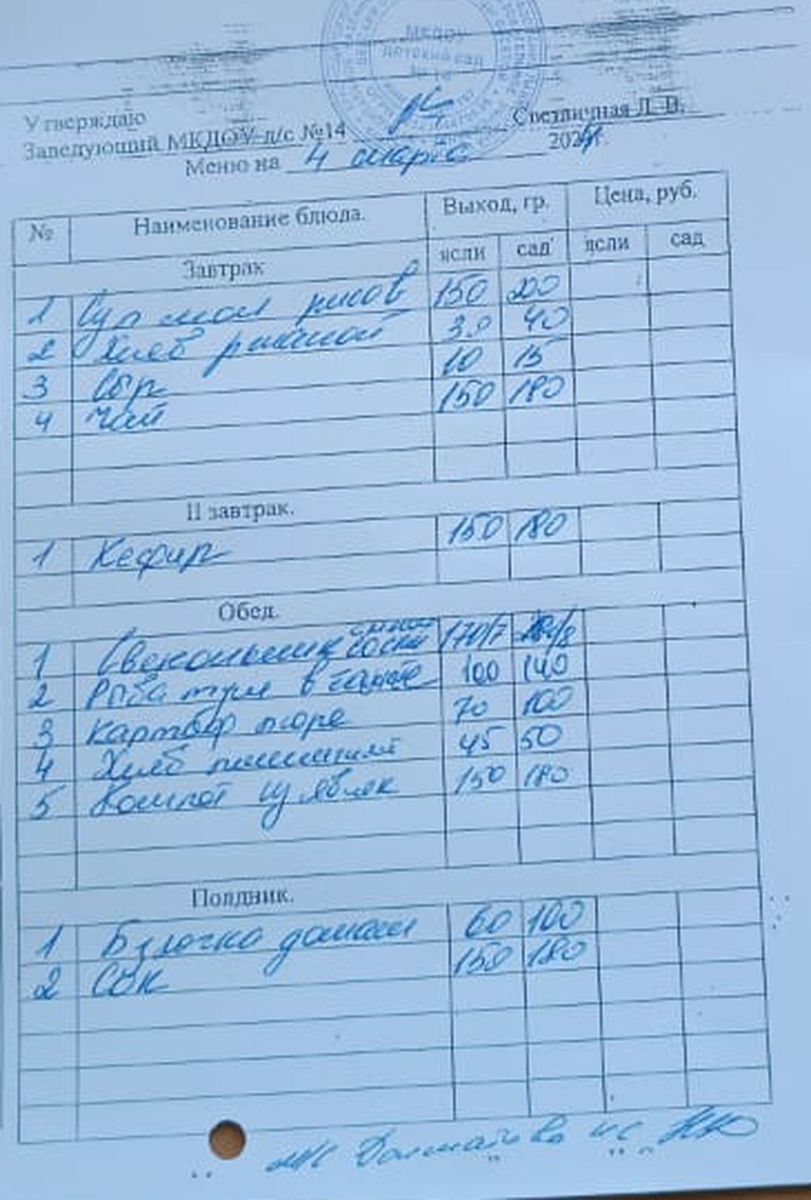 МКДОУ
детский сад
№ 14
Утверждаю
Заведующий МКДОУ д/с №14 Светличная Л. В.
Меню на 4 марта 2024г.
№ Наименование блюда. Выход, гр. Цена, руб.
ясли сад ясли сад
Завтрак
1 Суп мол рисов 150 200
2 Хлеб ржаной 30 40
3 Сыр 10 15
4 Чай 150 180
II завтрак.
1 Кефир 150 180
Обед.
1 Свекольник 170/7
2 Рыба туш в 100 140
3 Картоф пюре 70 100
4 Хлеб пшенич 45 50
5 Компот из яблок 150 180
Полдник.
1 Булочка домаш 60 100
2 Сок 150 180
м/с